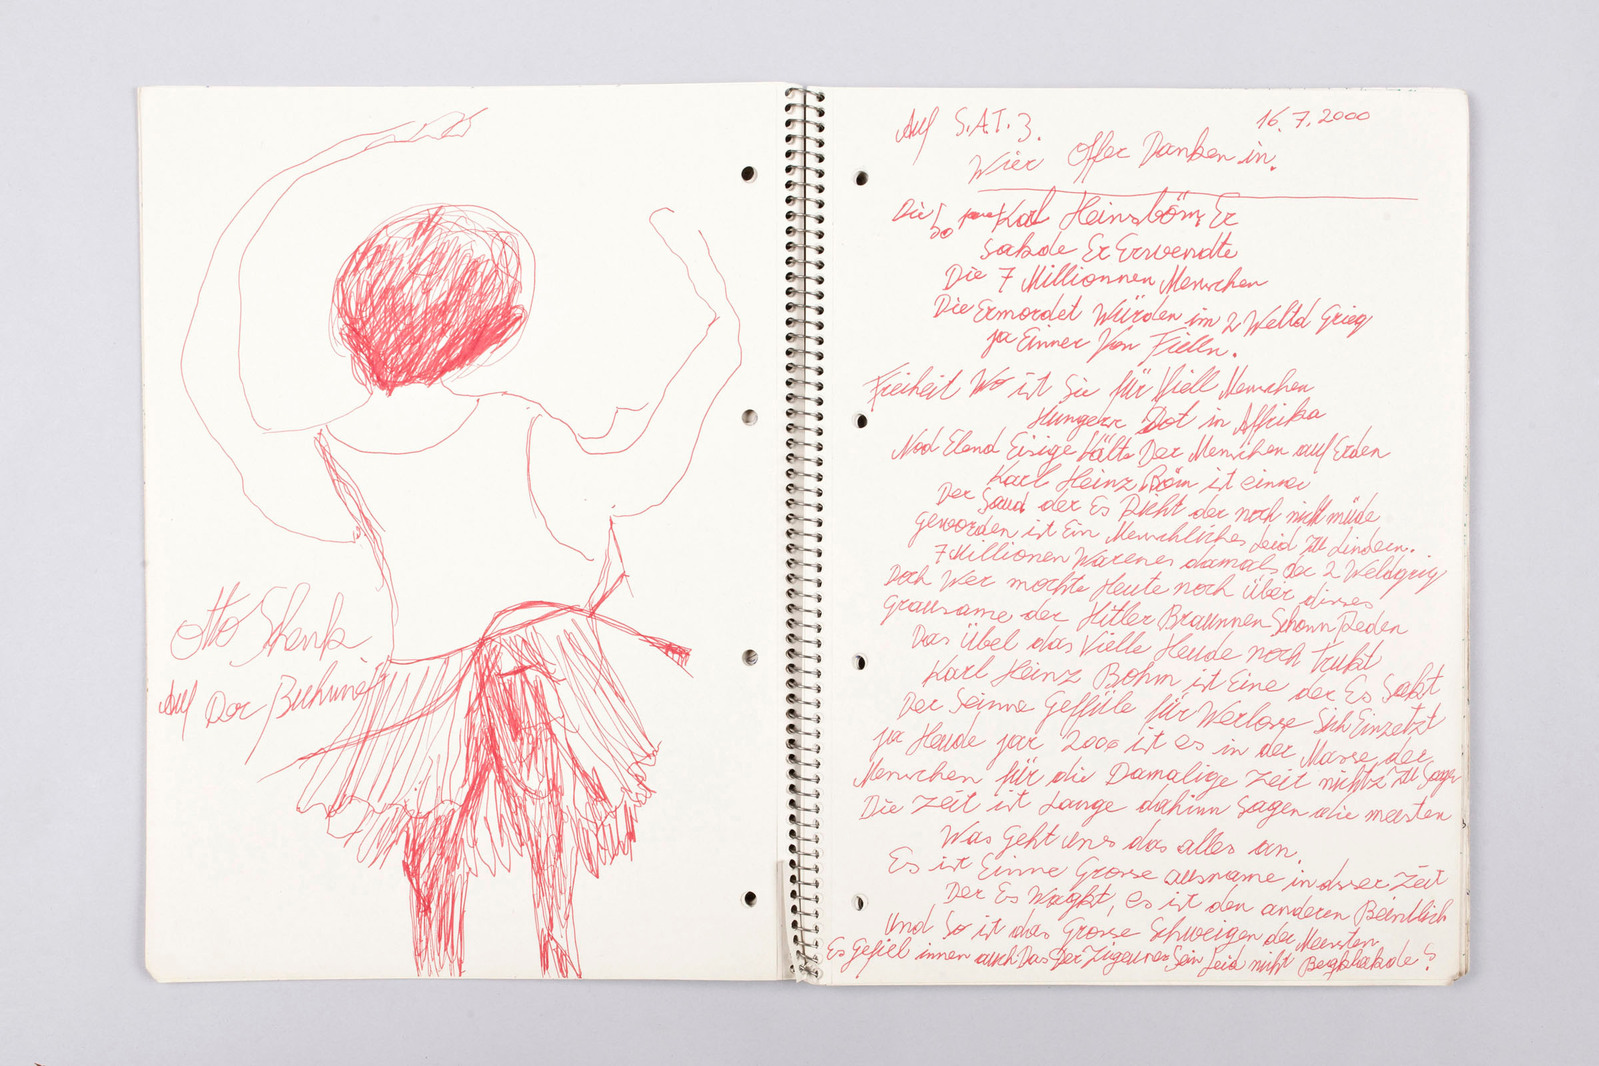 Otto Shenk
Auf Der Buhine
Auf S.A.T. 3. 16.7.2000
Wier Offer Danken in.
Die 50 Karl Heinsböm Er
sakde Er Erwendte
Die 7 Millionnen Menschen
Die Ermordet Würden im 2 Weltd Grieg
ja Einner Von Fielln.
Freiheit Wo ist Sie für Viell Menschen
Hungerr Dot in Affrika
Nod Elend Eisige Kälte Der Menschen auf Erden
Karl Heinz Böm ist einer
Der Saud der Es Dicht der noch nicht müde
geworden ist Ein Menschliches Leid zu Lindern.
7 Millionen Warenes damals der 2 Weldgrig
Doch Wer möchte Heute noch über disses
Grausame der Hitler Braunnen Schonn Reden
Das Übel das Vielle Heude noch trukt
Karl Heinz Bohm ist Eine der Es Sakt
Der Seinne Gefüle für Werlosse Sich Einzetzt
ja Heude jar 2000 ist es in der Masse der
Menschen für die Damalige Zeit nichtz zu Sagen
Die Zeit ist Lange dahinn Sagen die meisten
Was geht uns das alles an.
Es ist Einne Grosse ausname in disser Zeit
Der Es Wagkt, es ist den anderen Beindlich
Und So ist das Grosse Schweigen der Meisten
Es Gefiel innen auch Das Der Zigeuner Sein Leid nicht Begklakde?